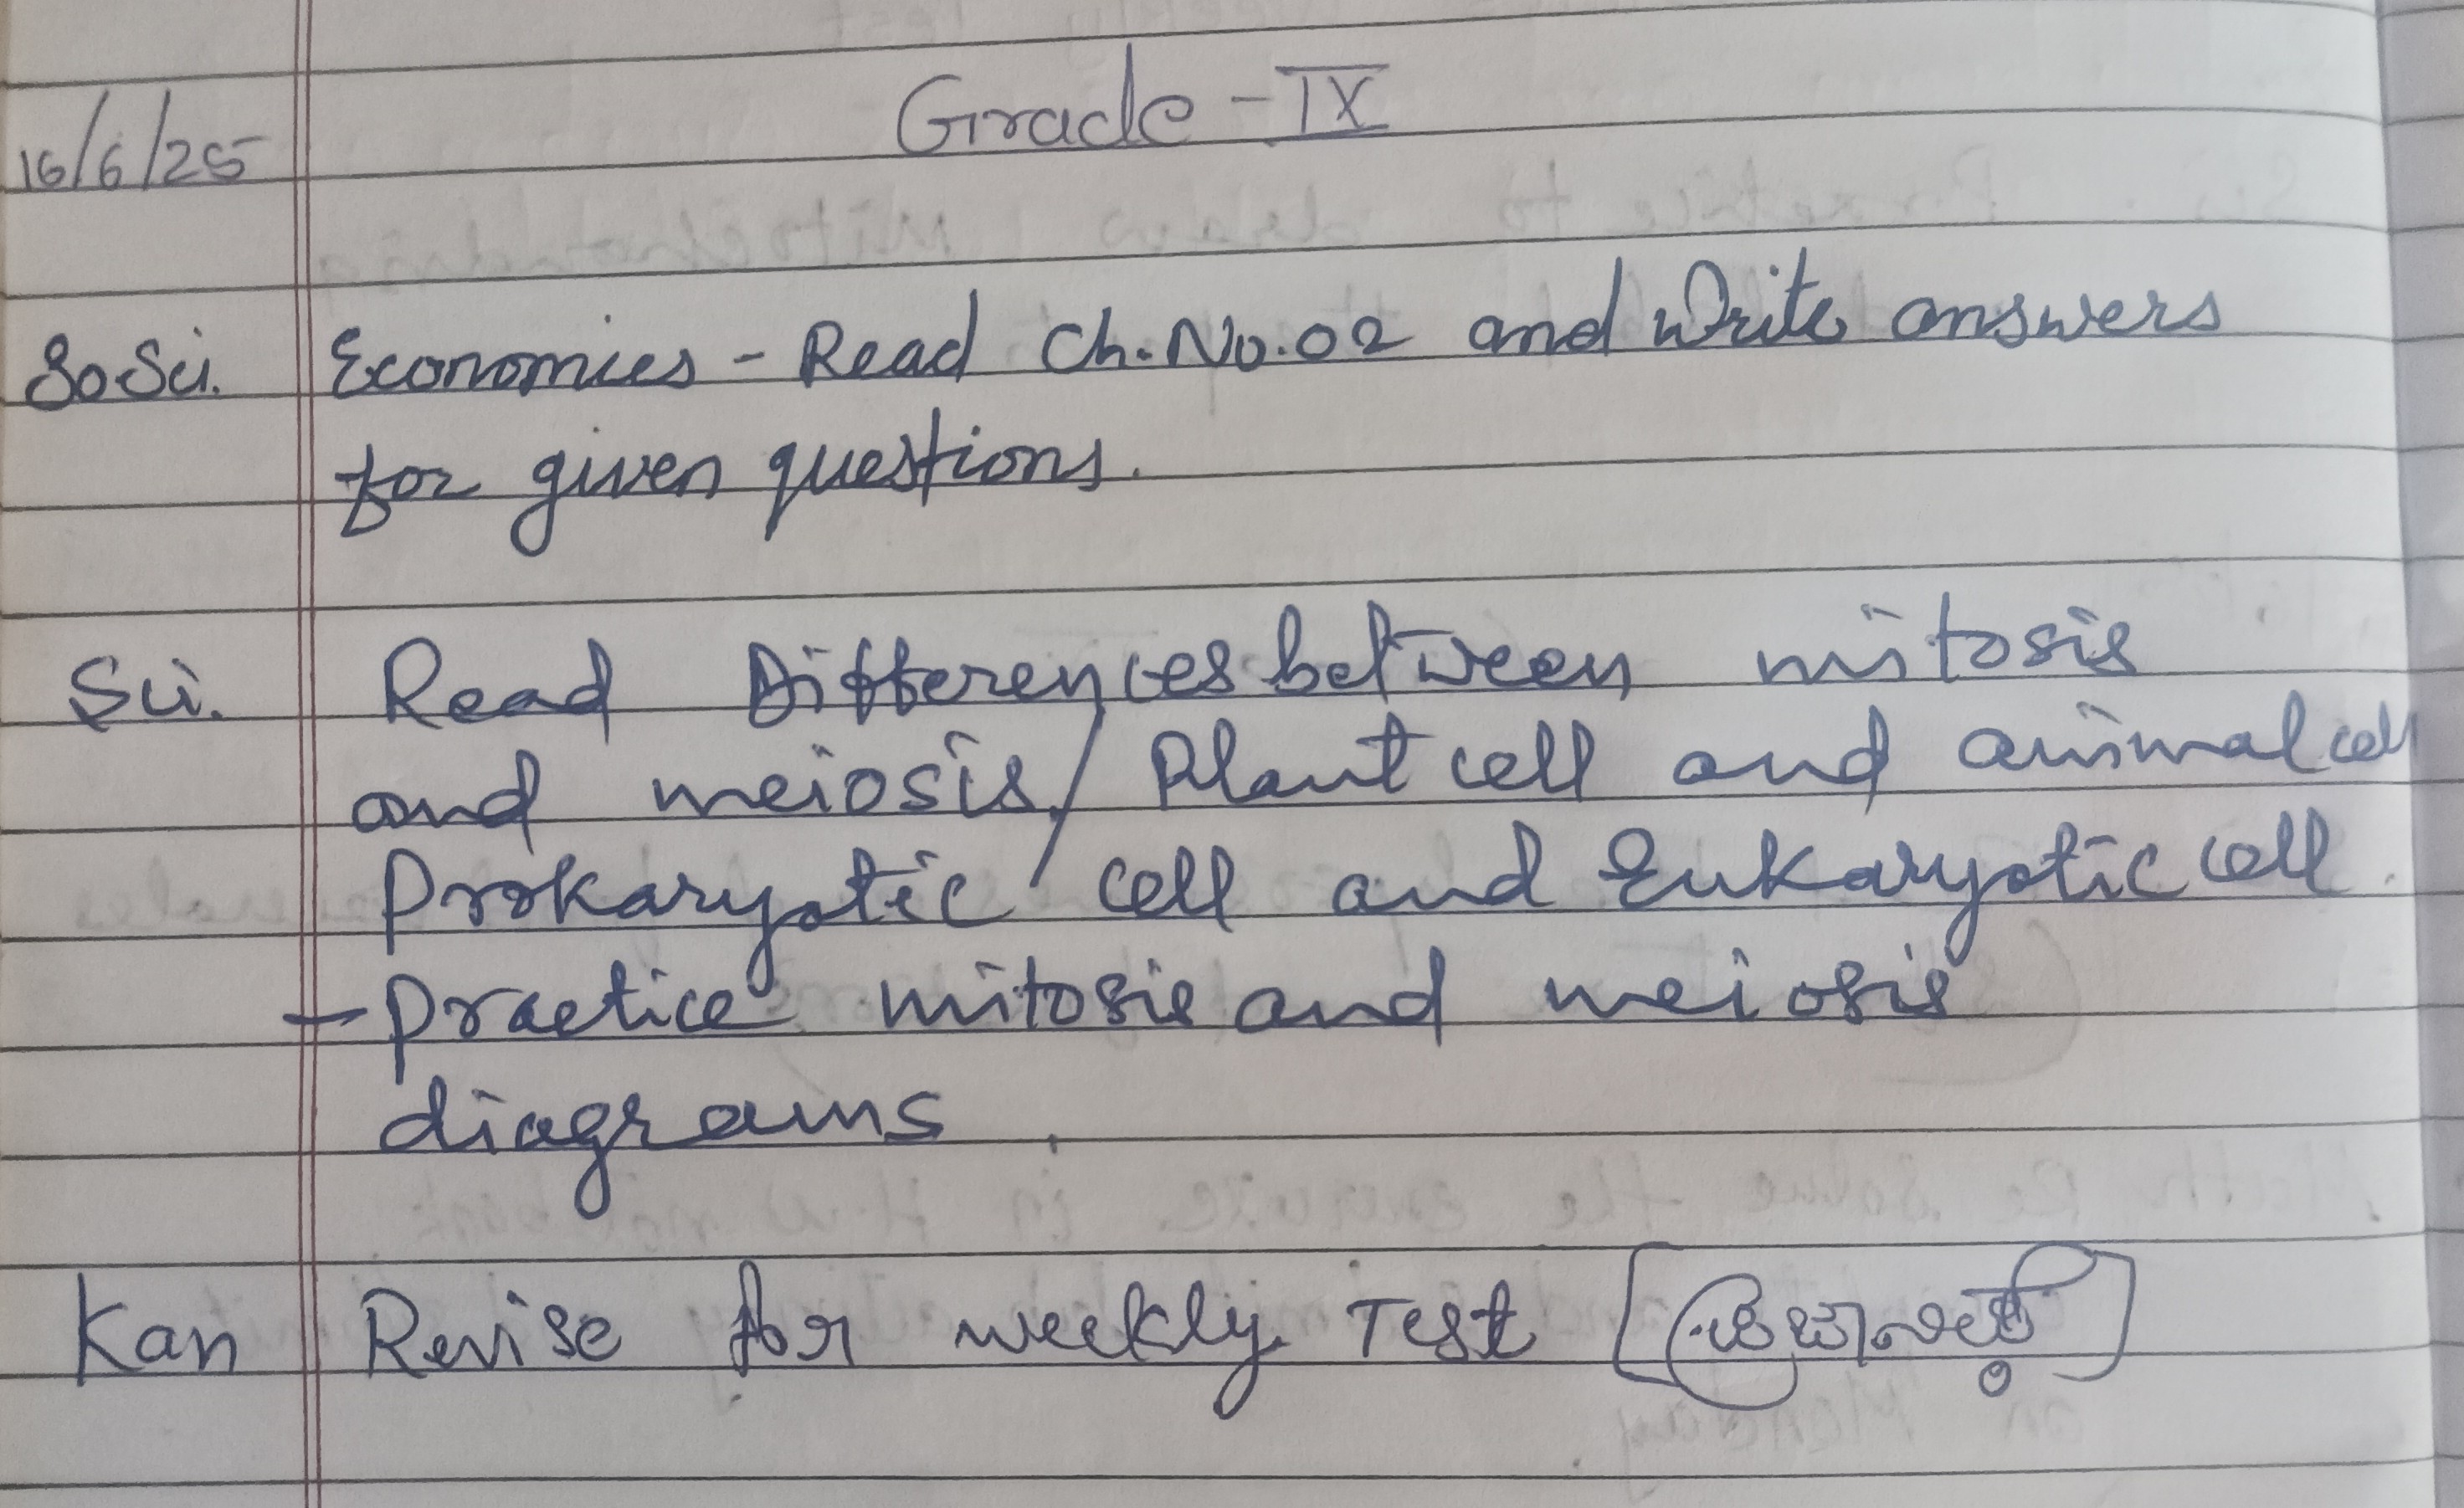 Grade - IX
16/6/25
So Sci. Economics - Read Ch. No. 02 and write answers
for given questions.
Sci. Read Differences between mitosis
and meiosis / Plant cell and animal cell
Prokaryotic cell and Eukaryotic cell.
- Practice mitosis and meiosis
diagrams.
Kan Revise for weekly Test [